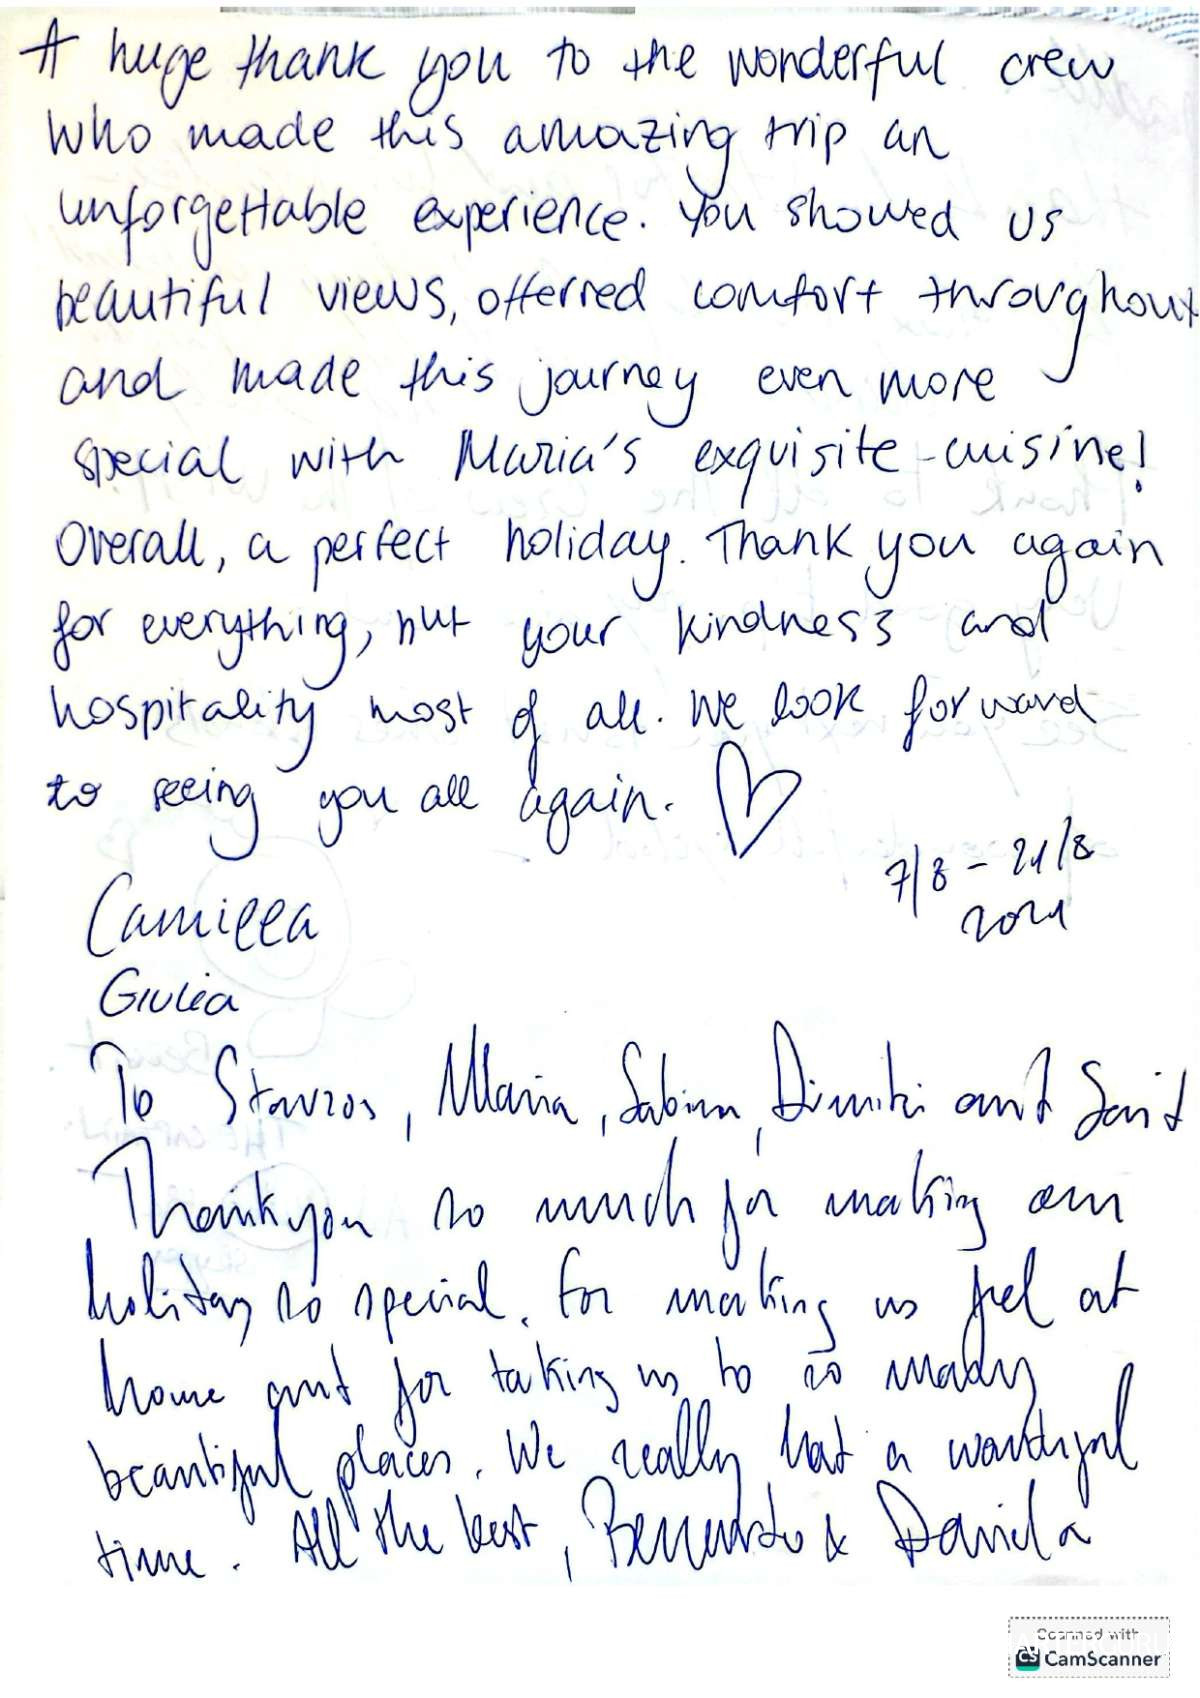 A huge thank you to the wonderful crew
who made this amazing trip an
unforgettable experience. You showed us
beautiful views, offerred comfort throughout
and made this journey even more
special with Maria's exquisite cuisine!
Overall, a perfect holiday. Thank you again
for everything, but your kindness and
hospitality most of all. We look forward
to seeing you all again. ♡
7/8 - 21/8
2021
Camilla
Giulia
To Stavros, Maria, Sabina, Dimitri and Said
Thank you so much for making our
holiday so special. For making us feel at
home and for taking us to so many
beautiful places. We really had a wonderful
time. All the best, & Daniela
Scanned with
CS CamScanner